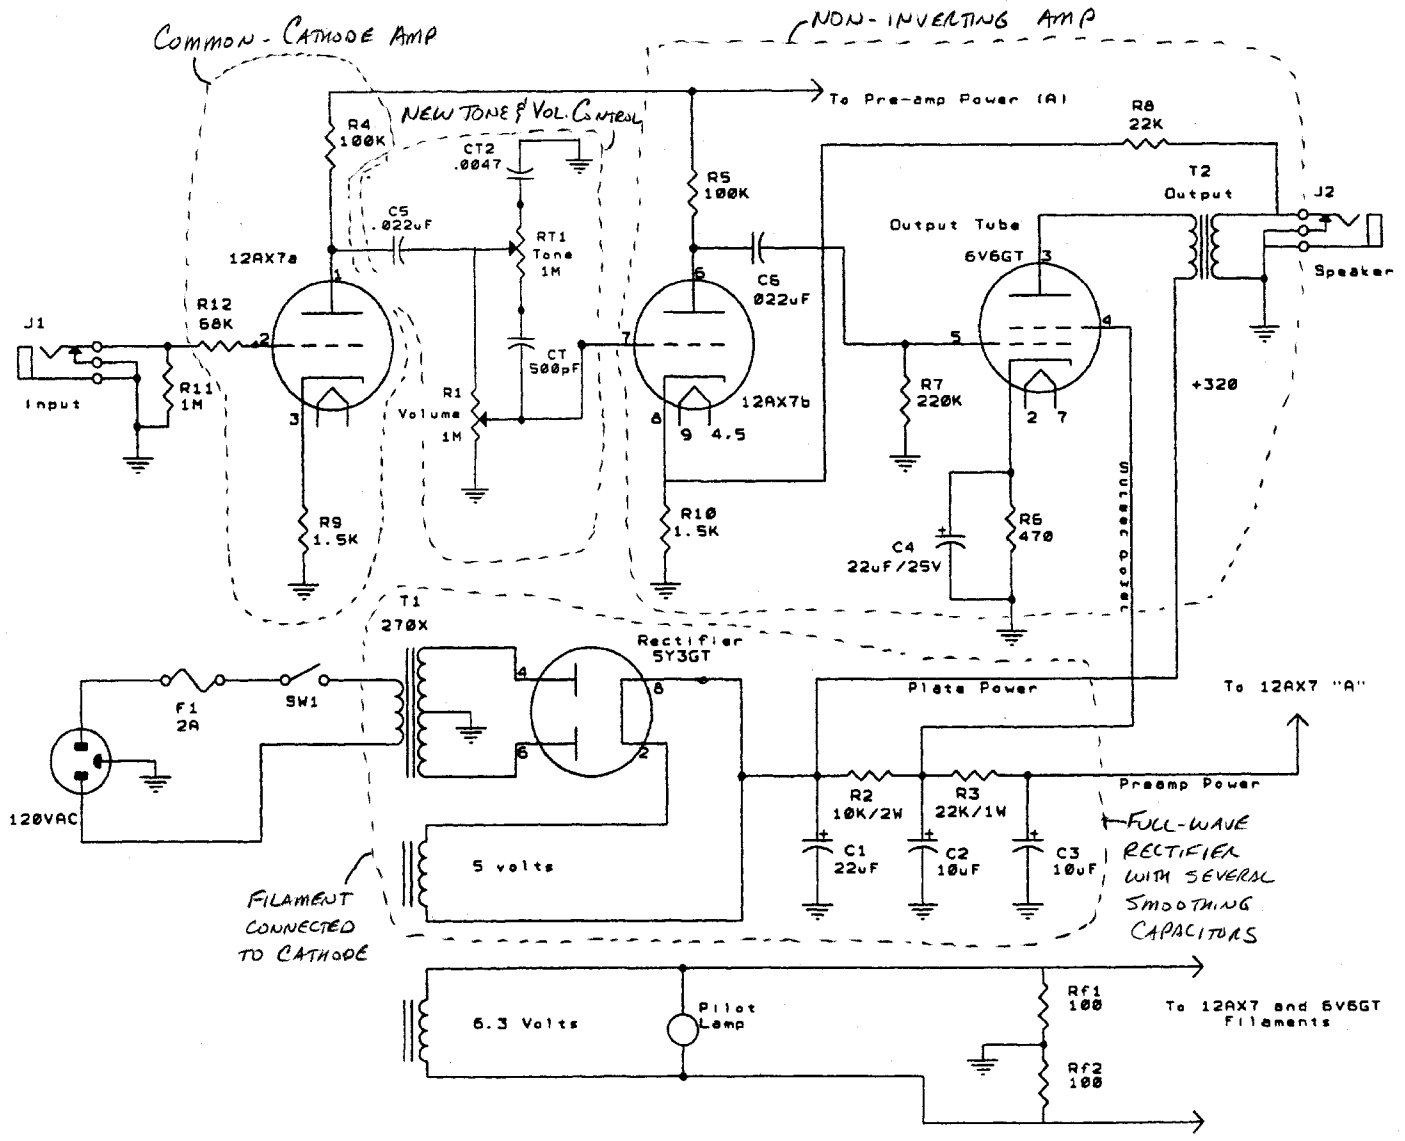 COMMON-CATHODE AMP
NON-INVERTING AMP
To Pre-amp Power (A)
NEW TONE & VOL. CONTROL
R4
100K
CT2
.0047
R5
100K
R8
22K
T2
Output
J2
C5
.022uF
RT1
Tone
1M
Output Tube
6V6GT
3
Speaker
12AX7a
1
6
C6
022uF
R12
68K
J1
2
7
5
4
Input
R11
1M
CT
500pF
R1
Volume
1M
3
8
9
4.5
12AX7b
R7
220K
2
7
+320
Screen Power
R9
1.5K
R10
1.5K
C4
22uF/25V
R6
470
T1
270X
Rectifier
5Y3GT
4
8
6
2
F1
2A
SW1
Plate Power
To 12AX7 "A"
120VAC
R2
10K/2W
R3
22K/1W
Preamp Power
C1
22uF
C2
10uF
C3
10uF
FULL-WAVE
RECTIFIER
WITH SEVERAL
SMOOTHING
CAPACITORS
5 volts
FILAMENT
CONNECTED
TO CATHODE
6.3 Volts
Pilot
Lamp
Rf1
100
Rf2
100
To 12AX7 and 6V6GT
Filaments